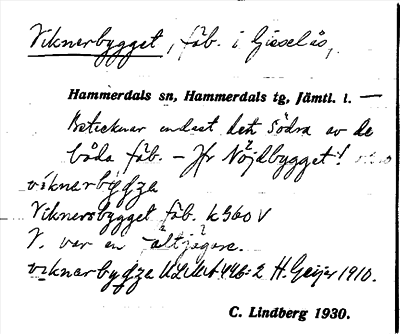 Viknerbygget, fäb. i Gisselås,
Hammerdals sn, Hammerdals tg, Jämtl. l. —
Betecknar endast det södra av de
båda fäb. – Jfr Nöjdbygget!
viknerbygʒa
Viknersbygget fäb. k 360 V
V. var en älgjägare.
viknerbygʒa ULMA 446:2 H. Geijer 1910.
C. Lindberg 1930.